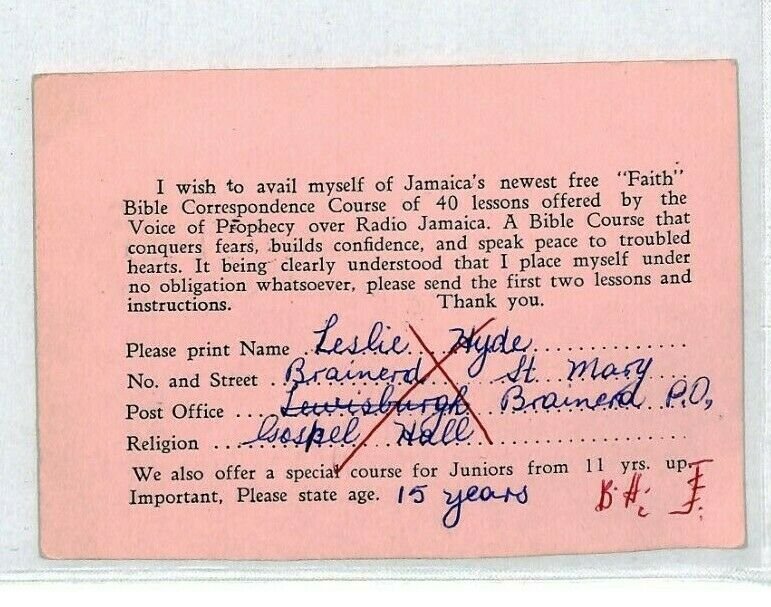 I wish to avail myself of Jamaica's newest free "Faith"
Bible Correspondence Course of 40 lessons offered by the
Voice of Prophecy over Radio Jamaica. A Bible Course that
conquers fears, builds confidence, and speak peace to troubled
hearts. It being clearly understood that I place myself under
no obligation whatsoever, please send the first two lessons and
instructions. Thank you.
Please print Name Leslie Hyde
No. and Street Brainerd St. Mary
Post Office Lewisburgh Brainerd P.O,
Religion Gospel Hall
We also offer a special course for Juniors from 11 yrs. up.
Important, Please state age. 15 years
B.H.